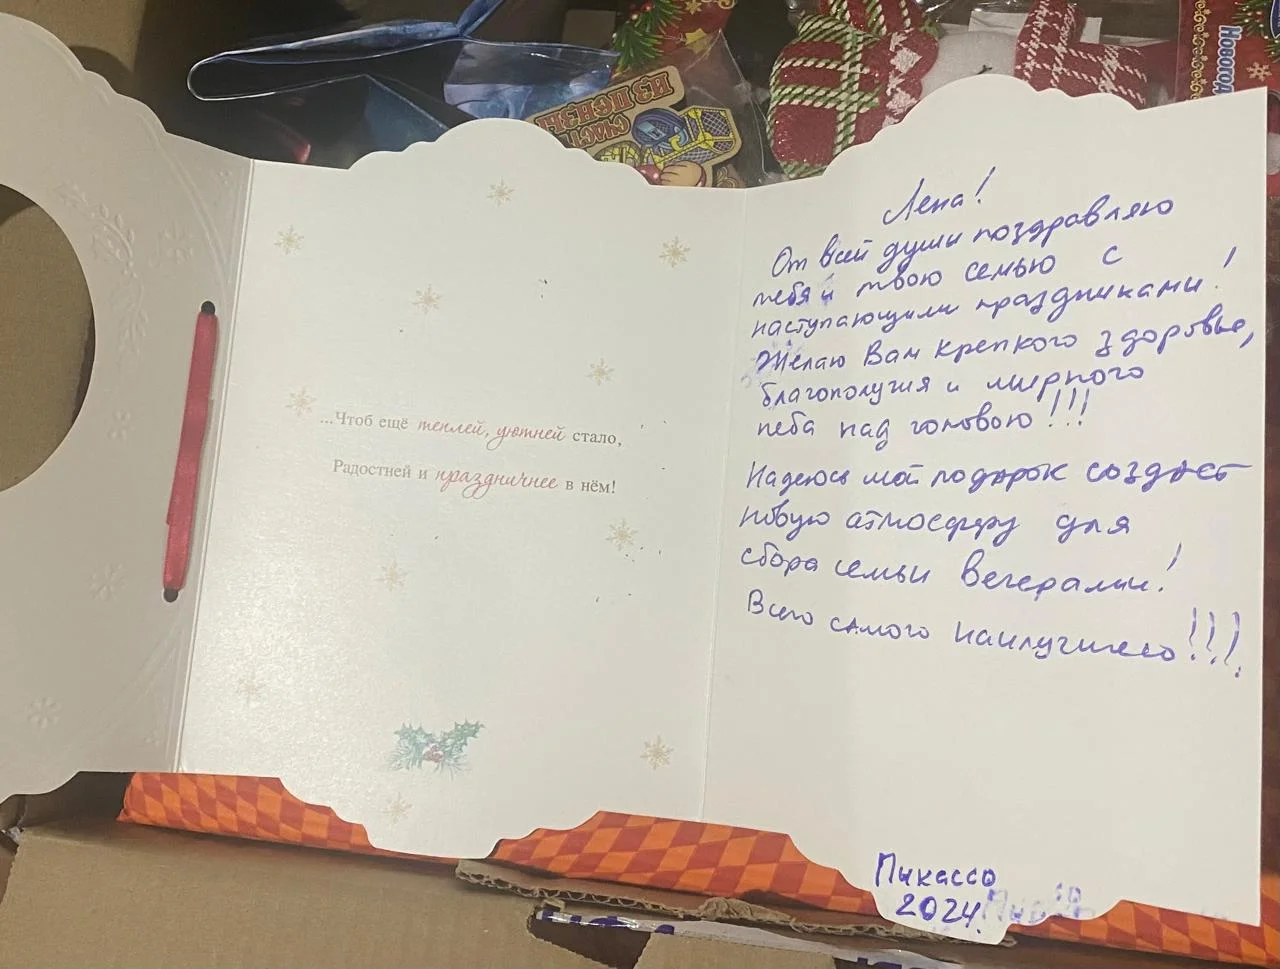 ИЗ ПЕНЗЫ
СЧАСТ
Новогод
...Чтоб ещё теплей, уютней стало,
Радостней и праздничнее в нём!
Лена!
От всей души поздравляю
тебя и твою семью с
наступающими праздниками!
Желаю Вам крепкого здоровье,
благополучия и мирного
неба над головою!!!
Надеюсь мой подарок создаст
новую атмосферу для
сбора семьи вечерами!
Всего самого наилучшего!!!
Пикассо
2024.